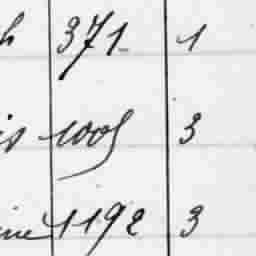 h 371 1
is 1005 3
ine 1192 3